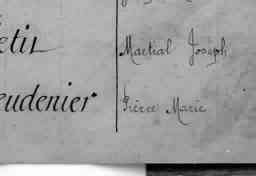 etit Martial Joseph
eudenier Pierre Marie